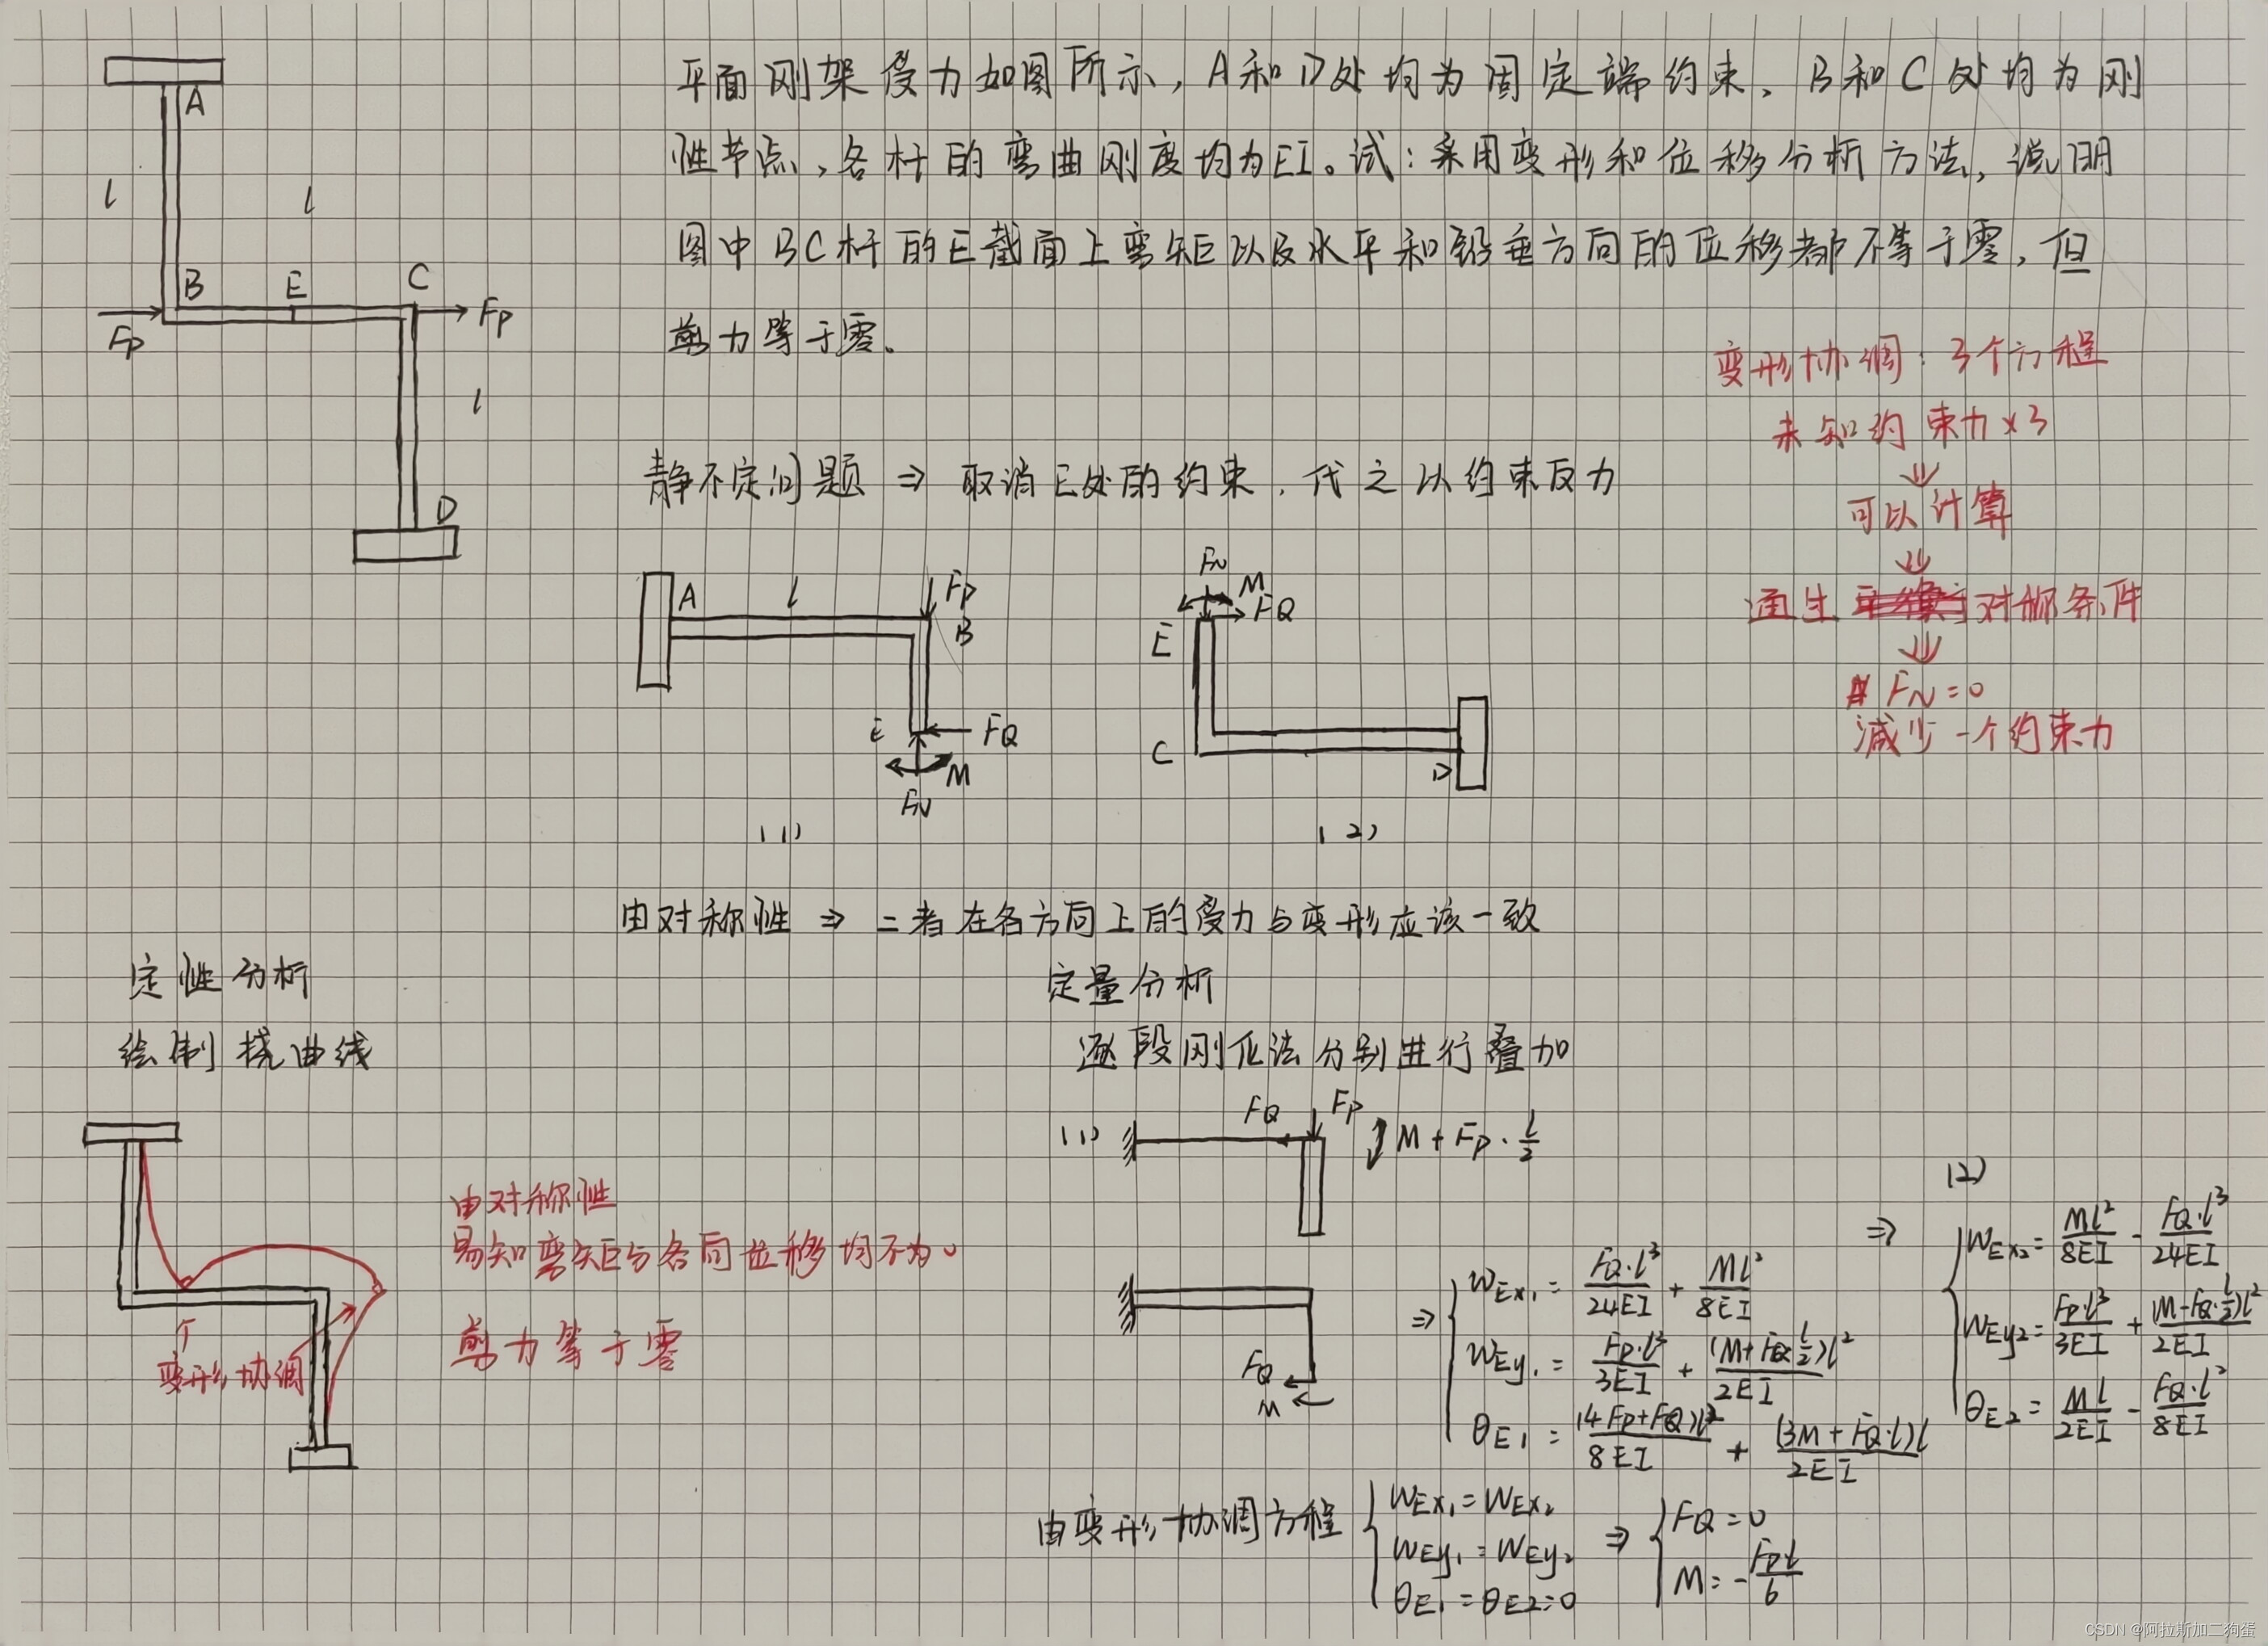 平面刚架受力如图所示，A和D处均为固定端约束，B和C处均为刚
性节点，各杆的弯曲刚度均为EI。试：采用变形和位移分析方法，说明
图中BC杆的E截面上弯矩以及水平和铅垂方向的位移都不等于零，但
剪力等于零。
A
l
l
B
E
C
Fp
Fp
l
D
变形协调：3个方程
未知约束力×3
⇓
可以计算
⇓
对称条件
⇓
FN=0
减少一个约束力
静不定问题 ⇒ 取消E处的约束，代之以约束反力
A
l
Fp
B
E
FQ
M
FN
(1)
FN
M
FQ
E
C
D
(2)
由对称性 ⇒ 二者在各方向上的受力与变形应该一致
定性分析
绘制挠曲线
变形协调
由对称性
易知弯矩与各向位移均不为0
剪力等于零
定量分析
逐段刚化法分别进行叠加
(1)
FQ
Fp
M+Fp·l/2
FQ
M
⇒ { wEx1 = FQ·l³/24EI + Ml²/8EI
wEy1 = Fp·l³/3EI + (M+FQ·l/2)l²/2EI
θE1 = (4Fp+FQ)l²/8EI + (3M+FQ·l)l/2EI
⇒ (2)
{ wEx2 = Ml²/8EI - FQ·l³/24EI
wEy2 = Fp·l³/3EI + (M-FQ·l/2)l²/2EI
θE2 = Ml/2EI - FQ·l²/8EI
由变形协调方程 { wEx1 = wEx2
wEy1 = wEy2
θE1 = θE2 = 0
⇒ { FQ = 0
M = -Fpl/6
CSDN @阿拉斯加二狗蛋